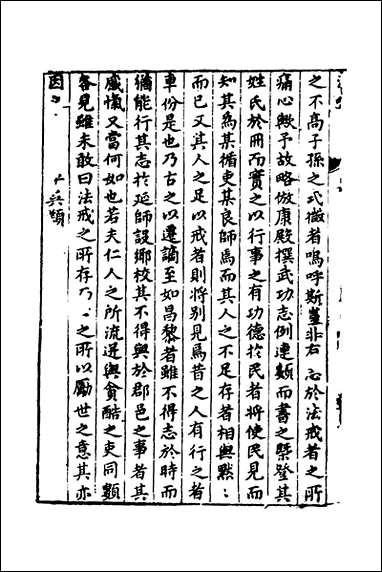 之不高子孫之式微者嗚呼斯豈非有志於法戒者之所
痛心歟予故略倣康殿撰武功志例連類而書之槩登其
姓氏於冊而實之以行事之有功德於民者將使民見而
知其為某循吏某良師焉而其人之不足存者相與默：
而已又其人之足以戒者則將別見焉昔之人有行之者
車份是也乃古之以遷謫至如昌黎者雖不得志於時而
猶能行其志於延師設鄉校其不得與於郡邑之事者其
感愾又當何如也若夫仁人之所流連與貪酷之吏同顯
各見雖未敢曰法戒之所存 之所以勵世之意其亦
因 兵類